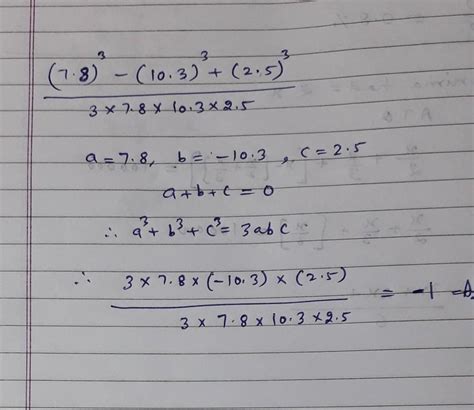 (7.8)³ − (10.3)³ + (2.5)³
3 × 7.8 × 10.3 × 2.5
a = 7.8, b = −10.3, c = 2.5
a + b + c = 0
∴ a³ + b³ + c³ = 3abc
∴ 3 × 7.8 × (−10.3) × (2.5)
3 × 7.8 × 10.3 × 2.5 = −1